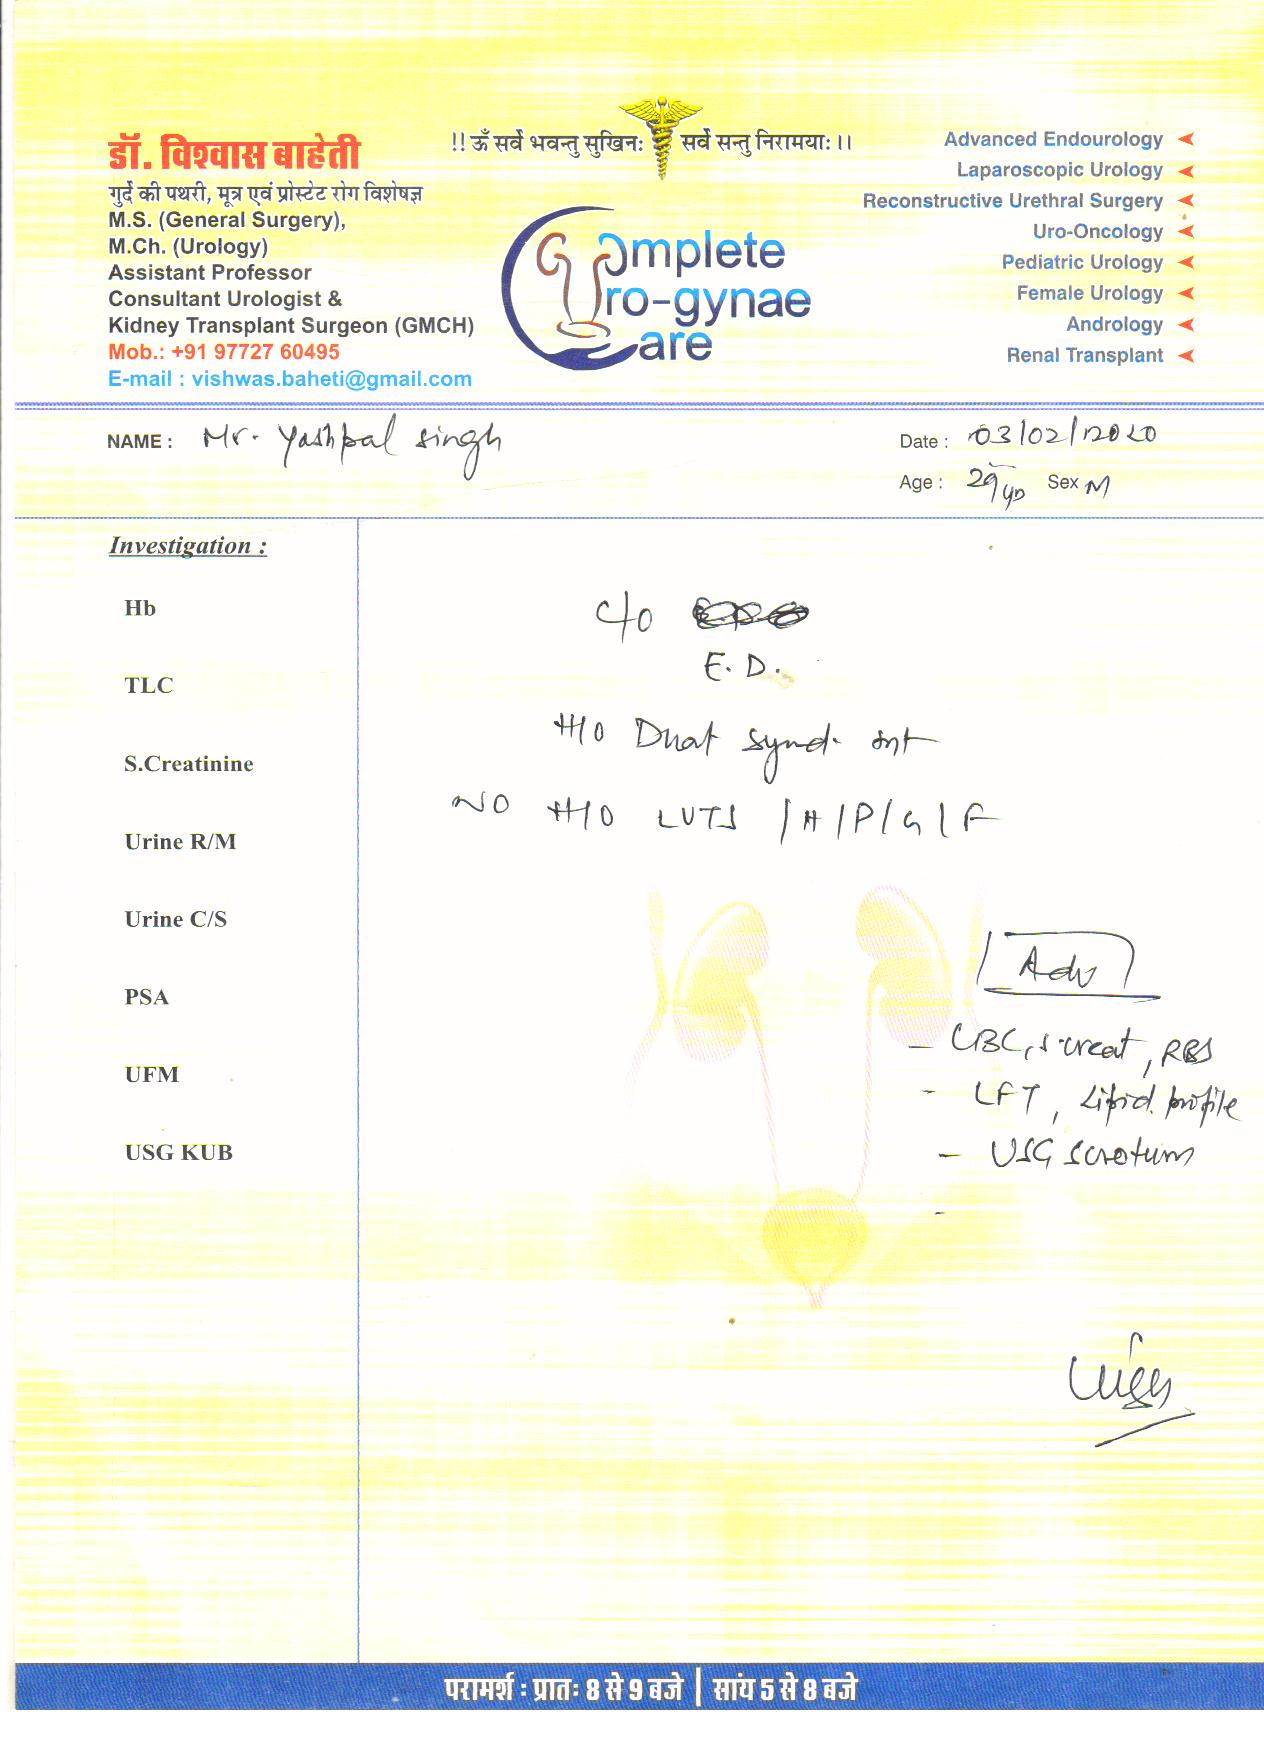 !! ॐ सर्वे भवन्तु सुखिनः सर्वे सन्तु निरामयाः ।।
डॉ. विश्वास बाहेती
गुर्दे की पथरी, मूत्र एवं प्रोस्टेट रोग विशेषज्ञ
M.S. (General Surgery),
M.Ch. (Urology)
Assistant Professor
Consultant Urologist &
Kidney Transplant Surgeon (GMCH)
Mob.: +91 97727 60495
E-mail : vishwas.baheti@gmail.com
Complete
Uro-gynae
Care
Advanced Endourology
Laparoscopic Urology
Reconstructive Urethral Surgery
Uro-Oncology
Pediatric Urology
Female Urology
Andrology
Renal Transplant
NAME : Mr. Yashpal Singh
Date : 03/02/2020
Age : 29 yr Sex M
Investigation :
Hb
TLC
S.Creatinine
Urine R/M
Urine C/S
PSA
UFM
USG KUB
C/O
E. D.
H/O Dhat synd.
NO H/O LUTS /H/P/G/F
Adv
- CBC, S.creat, RBS
- LFT, Lipid profile
- USG Scrotum
-
परामर्श : प्रातः 8 से 9 बजे | सांय 5 से 8 बजे